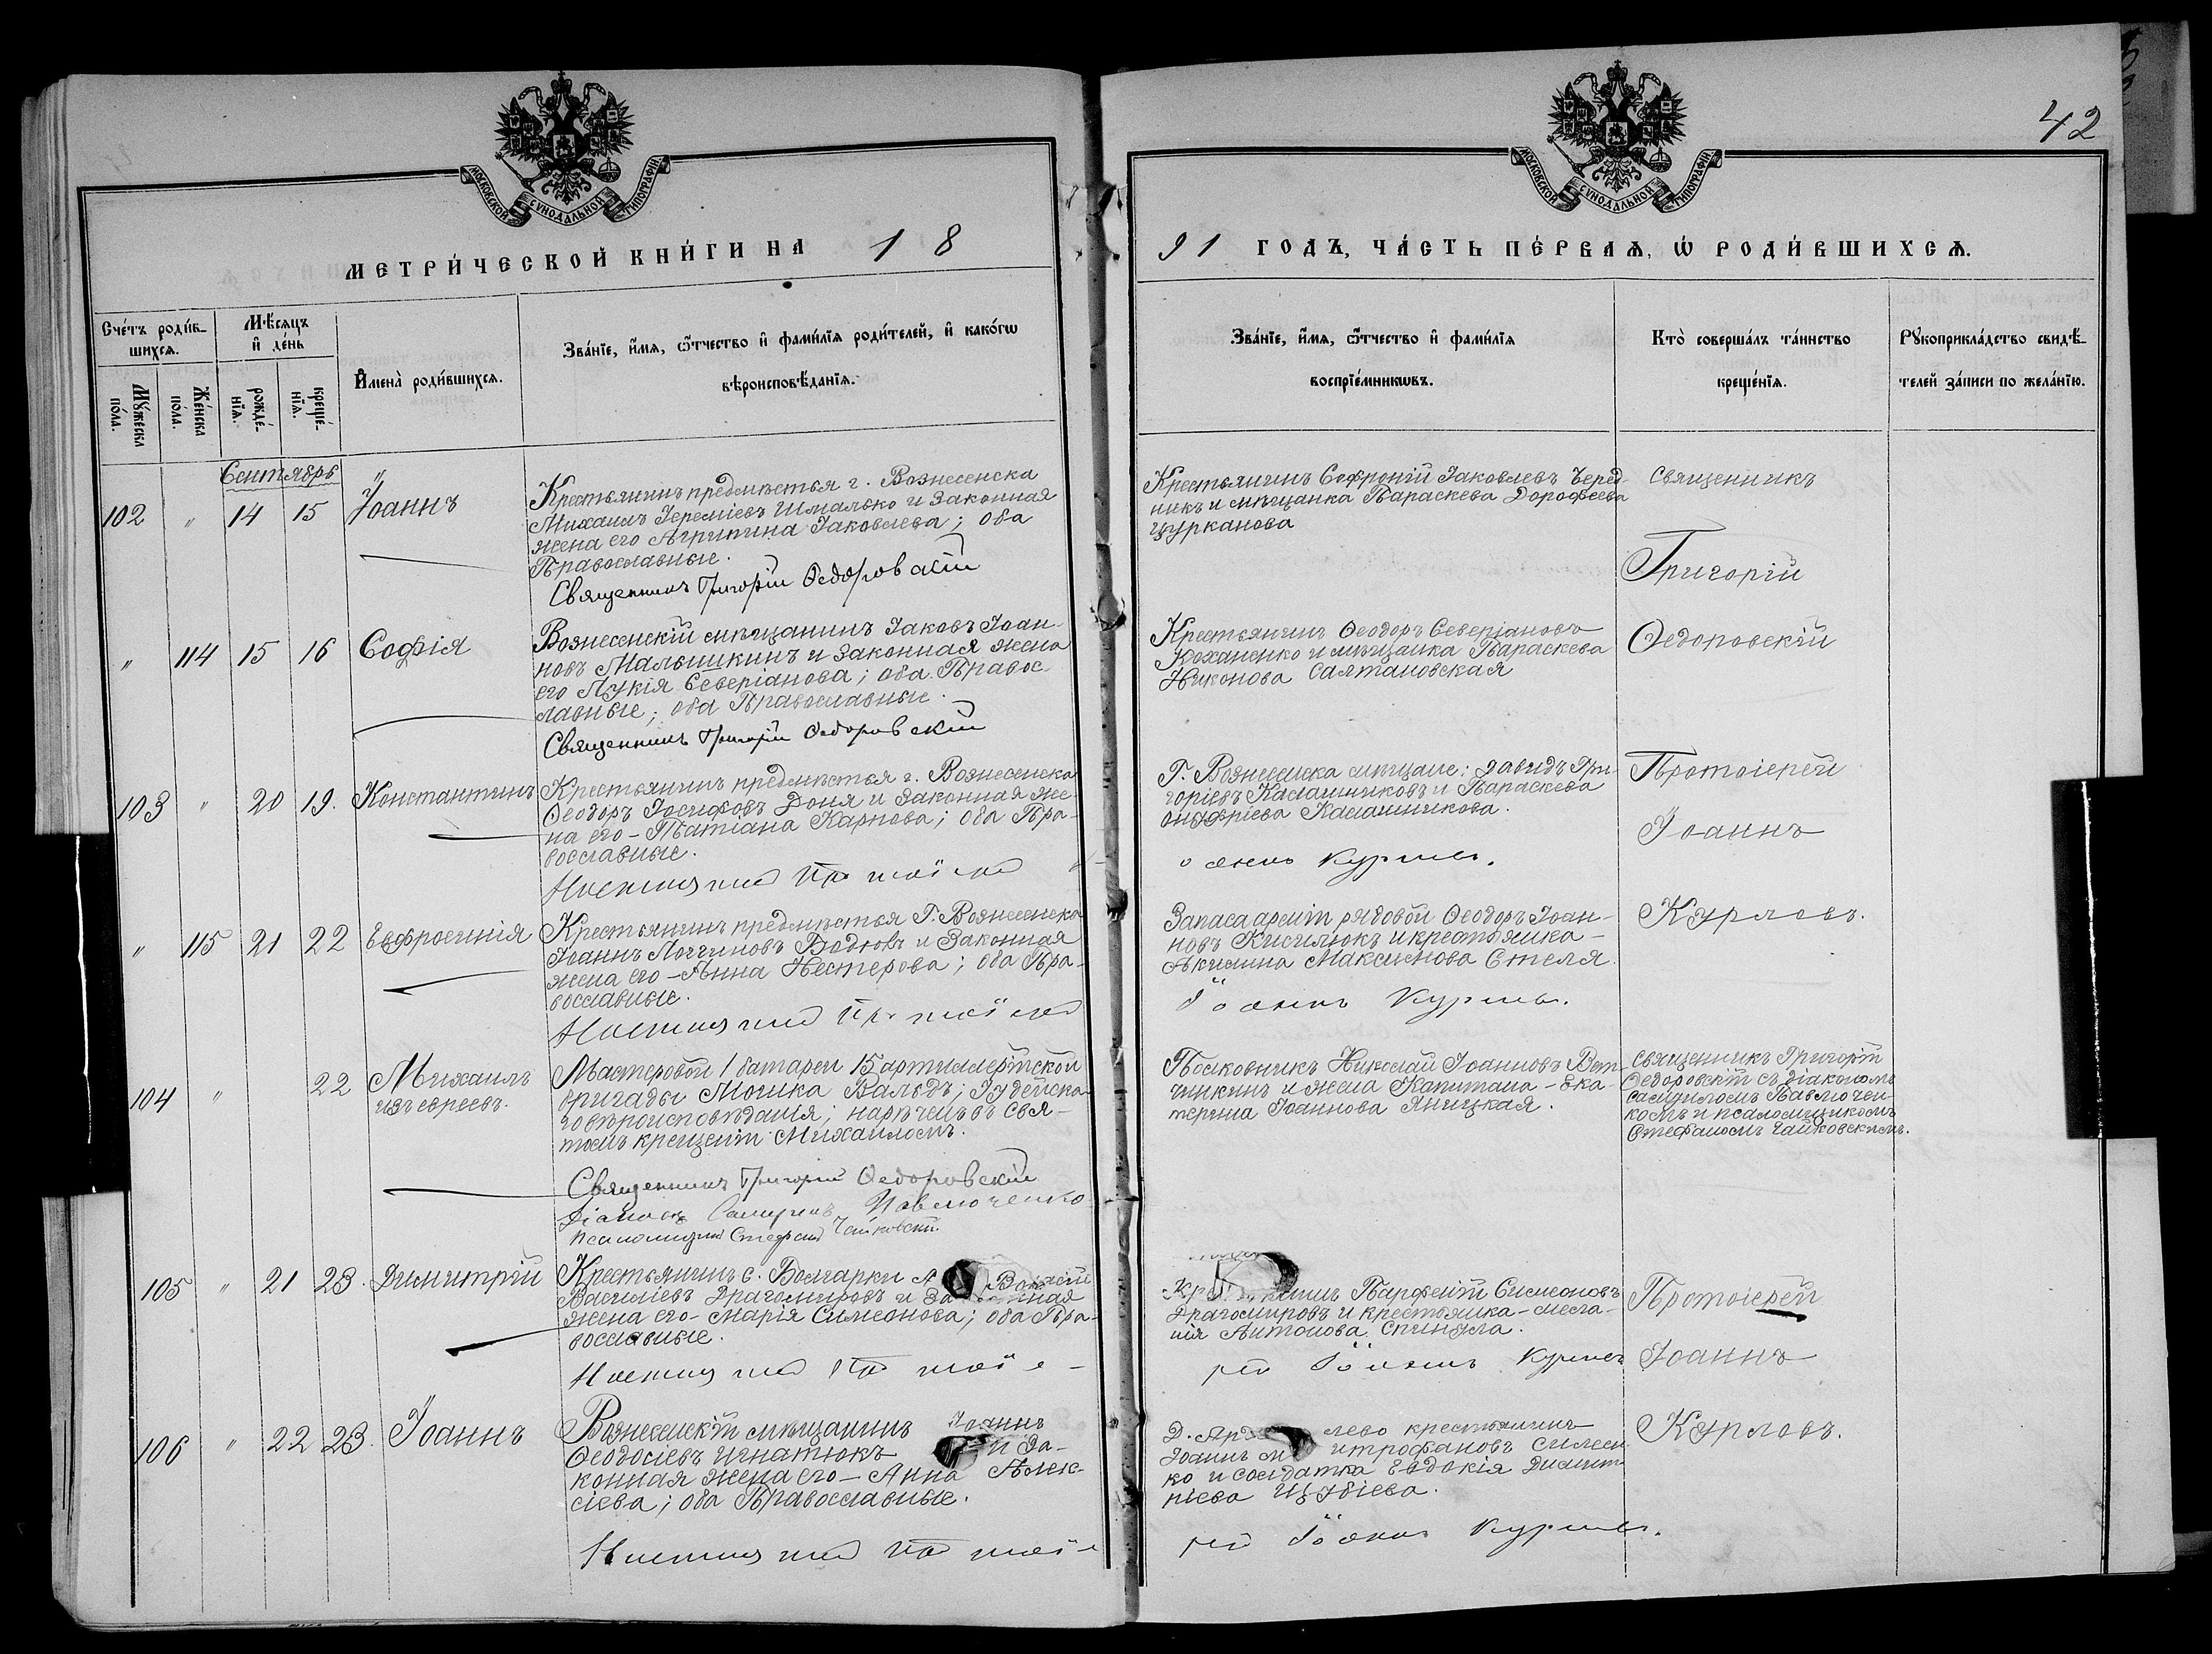 42
МОСКОВСКОЙ СѴНОДАЛЬНОЙ ТИПОГРАФІИ
МОСКОВСКОЙ СѴНОДАЛЬНОЙ ТИПОГРАФІИ
МЕТРИ́ЧЕСКОЙ КНИ́ГИ НА 18
91 ГОДЪ, ЧА́СТЬ ПЕ́РВАѦ, Ѡ РОДИ́ВШИХСѦ.
Сче́тъ роди́в-
шихсѧ.
Мꙋ́жеска по́ла.
Же́нска по́ла.
Мѣ́сяцъ
и҆ де́нь
рожде́-
нїѧ.
креще́-
нїѧ.
И҆мена̀ роди́вшихсѧ.
Зва́нїе, и҆́мѧ, ѻ҆́тчество и҆ фами́лїѧ роди́телей, и҆ како́гѡ
вѣроисповѣ́данїѧ.
Зва́нїе, и҆́мѧ, ѻ҆́тчество и҆ фами́лїѧ
воспрїе́мникѡвъ.
Кто̀ соверша́лъ та́инство
креще́нїѧ.
Рꙋкоприкла́дство свидѣ́-
телей за́писи по жела́нїю.
Сентябрь
102 " 14 15 Іоаннъ
Крестьянинъ предмѣстья г. Вознесенска
Михаилъ Іереміевъ Шмалько и законная
жена его Агрипина Іаковлева; оба
Православные.
Священникъ Григорій Ѳедоровскій
Крестьянинъ Софроній Іаковлевъ Черед-
никъ и мѣщанка Параскева Дорофеева
Цурканова
Священникъ
Григорій
Ѳедоровскій
" 114 15 16 Софія
Вознесенскій мѣщанинъ Іаковъ Іоан-
новъ Малышкинъ и законная жена
его Лукія Северіанова; оба Правос-
лавные; оба Православные.
Священникъ Григорій Ѳедоровскій
Крестьянинъ Ѳеодоръ Северіановъ
Коханенко и мѣщанка Параскева
Никонова Салтановская
103 " 20 19. Константинъ
Крестьянинъ предмѣстья г. Вознесенска
Ѳеодоръ Іосифовъ Доня и законная же-
на его - Татіана Карпова; оба Пра-
вославные.
Г. Вознесенска мѣщане: Давидъ Гри-
горіевъ Калашниковъ и Параскева
Онуфріева Калашникова.
Протоіерей
Іоаннъ
Курловъ.
" 115 21 22 Евфросинія
Крестьянинъ предмѣстья Г. Вознесенска
Іоаннъ Логгиновъ Водювъ и законная
жена его - Анна Нестерова; оба Пра-
вославные.
Запаса арміи рядовой Ѳеодоръ Іоан-
новъ Кисилюкъ и крестьянка -
Акилина Максимова Стеля.
Іоаннъ Курловъ.
104 " 22 Михаилъ
изъ евреевъ.
Мастеровой 1 батареи 15 артиллерійской
бригады Мошка Вальдъ; Іудейска-
го вѣроисповѣданія; нареченъ въ Свя-
томъ крещеніи Михаиломъ.
Священникъ Григорій Ѳедоровскій
Діаконъ Самуилъ Павлюченко
Псаломщикъ Стефанъ Чайковскій
Полковникъ Николай Іоанновъ Вет-
чинкинъ и жена Капитана - Ека-
терина Іоаннова Яницкая.
Священникъ Григорій
Ѳедоровскій съ діакономъ
Самуиломъ Павлючен-
комъ и псаломщикомъ
Стефаномъ Чайковскимъ.
105 " 21 23. Димитрій
Крестьянинъ с. Болгарки
Василіевъ Драгомировъ и законная
жена его - Марія Симеонова; оба Пра-
вославные.
Парфеній Симеоновъ
Драгомировъ и крестьянка - Мела-
нія Антонова Спинула.
рей Іоаннъ Курловъ
Протоіерей
Іоаннъ
Курловъ.
106 " 22 23. Іоаннъ
Вознесенскій мѣщанинъ Іоаннъ
Ѳеодосіевъ Игнатюкъ и За-
конная жена его - Анна Алек-
сіева; оба Православные.
крестьянинъ
Іоаннъ Митрофановъ Симен
ко и солдатка Евдокія Димит-
ріева
рей Іоаннъ Курловъ.